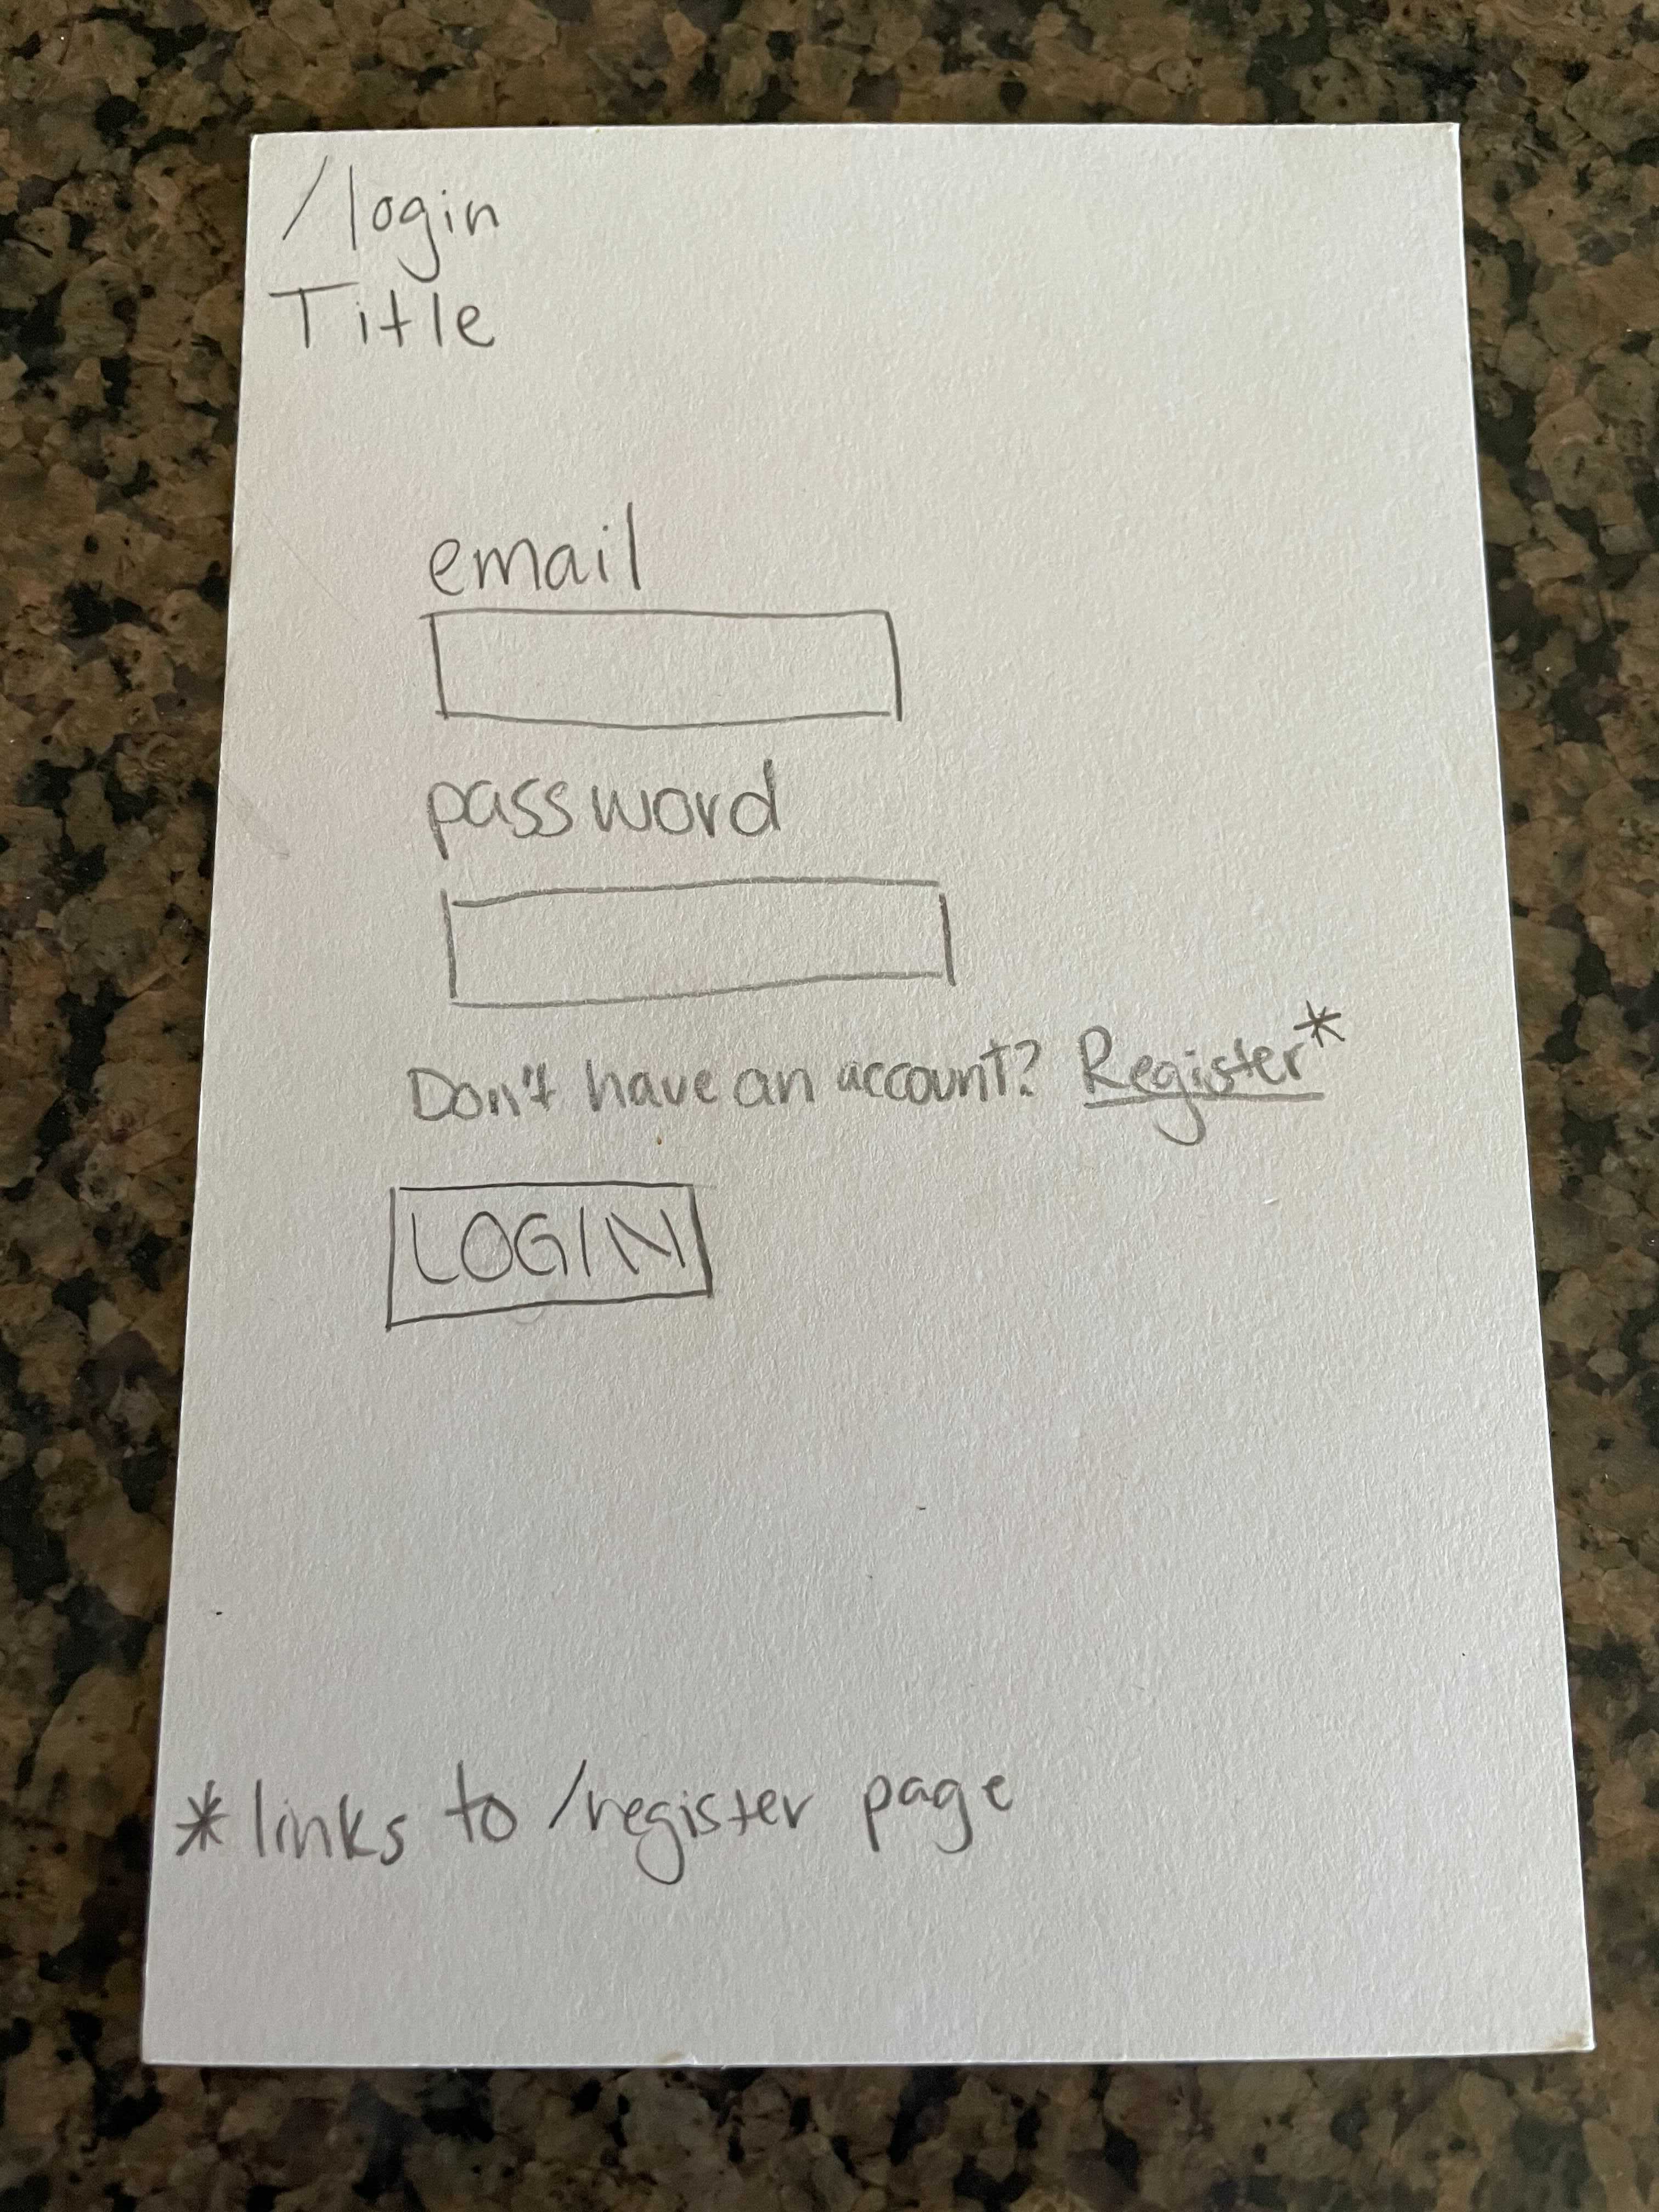 /login
Title
email
password
Don't have an account? Register*
LOGIN
*links to /register page